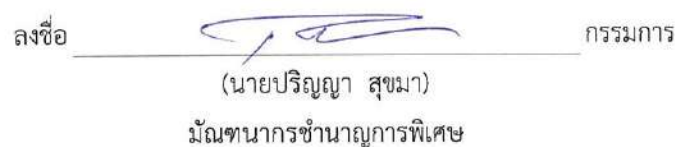 ลงชื่อ กรรมการ
(นายปริญญา สุขมา)
มัณฑนากรชำนาญการพิเศษ